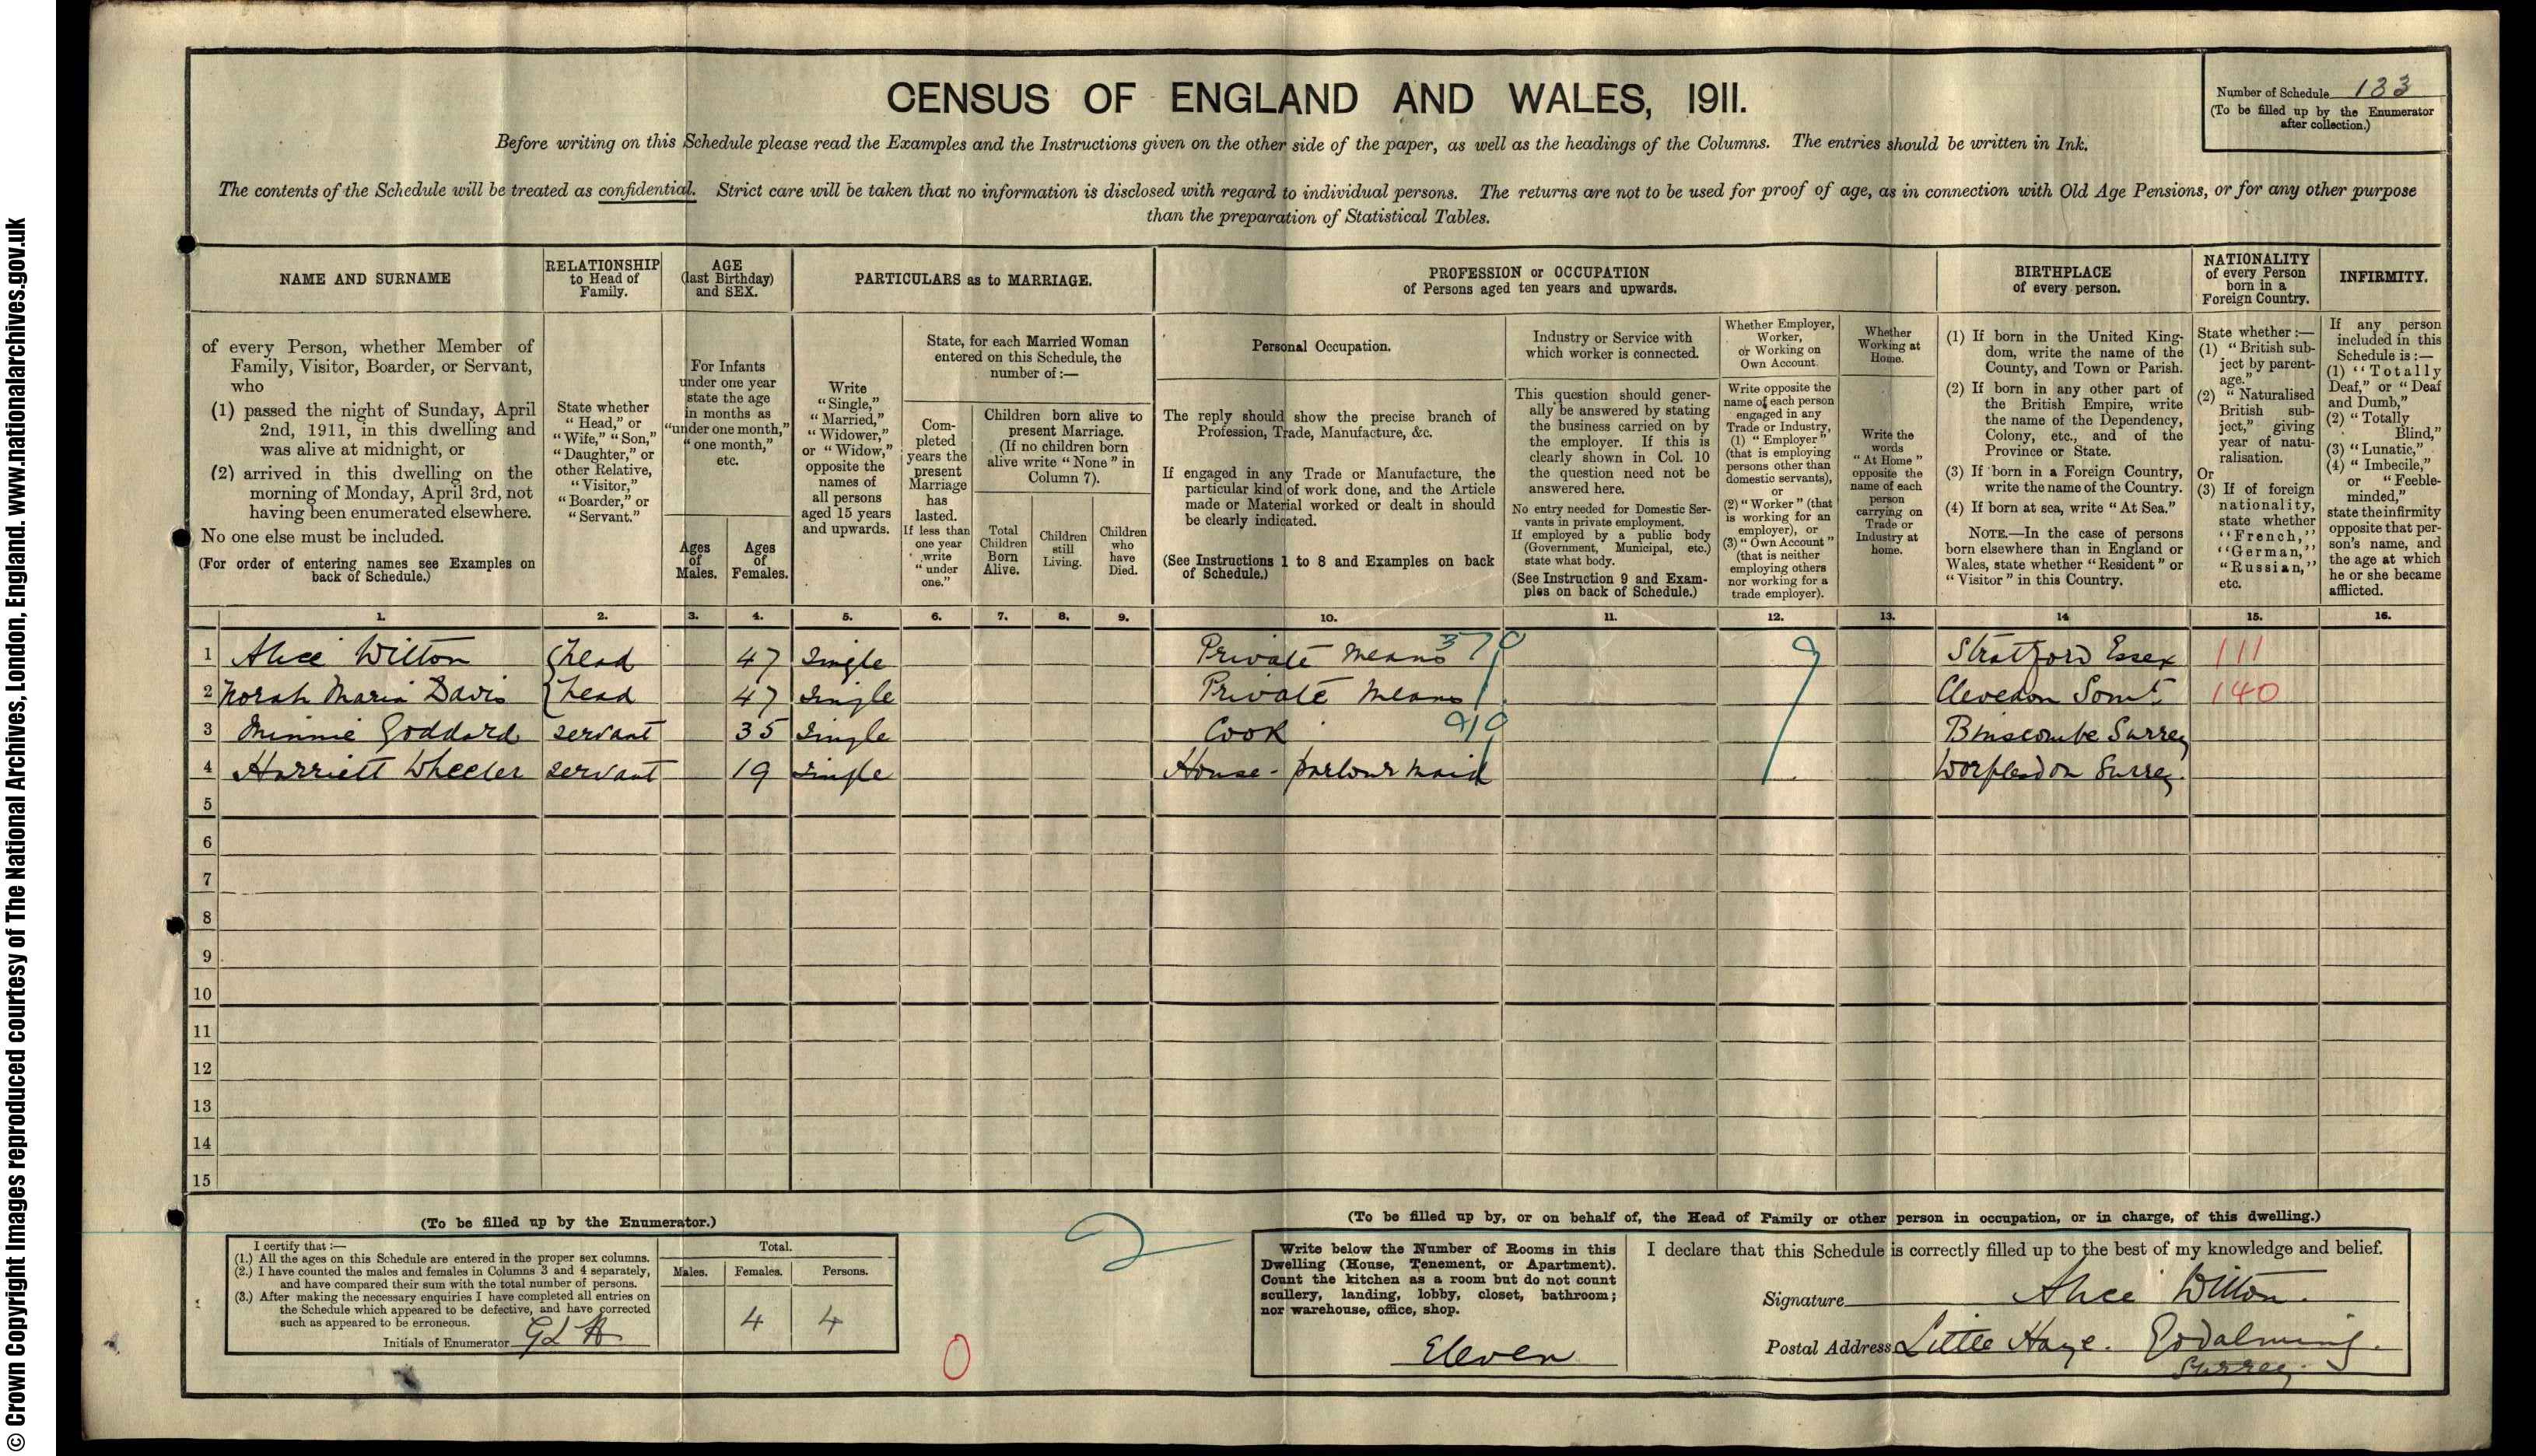 CENSUS OF ENGLAND AND WALES, 1911.
Number of Schedule 133
(To be filled up by the Enumerator
after collection.)
Before writing on this Schedule please read the Examples and the Instructions given on the other side of the paper, as well as the headings of the Columns. The entries should be written in Ink.
The contents of the Schedule will be treated as confidential. Strict care will be taken that no information is disclosed with regard to individual persons. The returns are not to be used for proof of age, as in connection with Old Age Pensions, or for any other purpose
than the preparation of Statistical Tables.
NAME AND SURNAME
of every Person, whether Member of
Family, Visitor, Boarder, or Servant,
who
(1) passed the night of Sunday, April
2nd, 1911, in this dwelling and
was alive at midnight, or
(2) arrived in this dwelling on the
morning of Monday, April 3rd, not
having been enumerated elsewhere.
No one else must be included.
(For order of entering names see Examples on
back of Schedule.)
RELATIONSHIP
to Head of
Family.
State whether
"Head," or
"Wife," "Son,"
"Daughter," or
other Relative,
"Visitor,"
"Boarder," or
"Servant."
AGE
(last Birthday)
and SEX.
For Infants
under one year
state the age
in months as
"under one month,"
"one month,"
etc.
Ages
of
Males.
Ages
of
Females.
PARTICULARS as to MARRIAGE.
Write
"Single,"
"Married,"
"Widower,"
or "Widow,"
opposite the
names of
all persons
aged 15 years
and upwards.
State, for each Married Woman
entered on this Schedule, the
number of:—
Com-
pleted
years the
present
Marriage
has
lasted.
If less than
one year
write
"under
one."
Children born alive to
present Marriage.
(If no children born
alive write "None" in
Column 7).
Total
Children
Born
Alive.
Children
still
Living.
Children
who
have
Died.
PROFESSION or OCCUPATION
of Persons aged ten years and upwards.
Personal Occupation.
The reply should show the precise branch of
Profession, Trade, Manufacture, &c.
If engaged in any Trade or Manufacture, the
particular kind of work done, and the Article
made or Material worked or dealt in should
be clearly indicated.
(See Instructions 1 to 8 and Examples on back
of Schedule.)
Industry or Service with
which worker is connected.
This question should gener-
ally be answered by stating
the business carried on by
the employer. If this is
clearly shown in Col. 10
the question need not be
answered here.
No entry needed for Domestic Ser-
vants in private employment.
If employed by a public body
(Government, Municipal, etc.)
state what body.
(See Instruction 9 and Exam-
ples on back of Schedule.)
Whether Employer,
Worker,
or Working on
Own Account.
Write opposite the
name of each person
engaged in any
Trade or Industry,
(1) "Employer"
(that is employing
persons other than
domestic servants),
or
(2) "Worker" (that
is working for an
employer), or
(3) "Own Account"
(that is neither
employing others
nor working for a
trade employer).
Whether
Working at
Home.
Write the
words
"At Home"
opposite the
name of each
person
carrying on
Trade or
Industry at
home.
BIRTHPLACE
of every person.
(1) If born in the United King-
dom, write the name of the
County, and Town or Parish.
(2) If born in any other part of
the British Empire, write
the name of the Dependency,
Colony, etc., and of the
Province or State.
(3) If born in a Foreign Country,
write the name of the Country.
(4) If born at sea, write "At Sea."
NOTE.—In the case of persons
born elsewhere than in England or
Wales, state whether "Resident" or
"Visitor" in this Country.
NATIONALITY
of every Person
born in a
Foreign Country.
State whether:—
(1) "British sub-
ject by parent-
age."
(2) "Naturalised
British sub-
ject," giving
year of natu-
ralisation.
Or
(3) If of foreign
nationality,
state whether
"French,"
"German,"
"Russian,"
etc.
INFIRMITY.
If any person
included in this
Schedule is:—
(1) "Totally
Deaf," or "Deaf
and Dumb,"
(2) "Totally
Blind,"
(3) "Lunatic,"
(4) "Imbecile,"
or "Feeble-
minded,"
state the infirmity
opposite that per-
son's name, and
the age at which
he or she became
afflicted.
1. 2. 3. 4. 5. 6. 7. 8. 9. 10. 11. 12. 13. 14 15. 16.
1 Alice Wilton head 47 Single Private means 370 9 Stratford Essex 111
2 Norah Maria Davis head 47 Single Private means Clevedon Somt. 140
3 Minnie Goddard servant 35 Single Cook 910 Binscombe Surrey
4 Harriett Wheeler servant 19 Single House-parlour maid Worplesdon Surrey.
5
6
7
8
9
10
11
12
13
14
15
(To be filled up by the Enumerator.)
I certify that:—
(1.) All the ages on this Schedule are entered in the proper sex columns.
(2.) I have counted the males and females in Columns 3 and 4 separately,
and have compared their sum with the total number of persons.
(3.) After making the necessary enquiries I have completed all entries on
the Schedule which appeared to be defective, and have corrected
such as appeared to be erroneous.
Initials of Enumerator
Total.
Males. Females. Persons.
4 4
0
2
(To be filled up by, or on behalf of, the Head of Family or other person in occupation, or in charge, of this dwelling.)
Write below the Number of Rooms in this
Dwelling (House, Tenement, or Apartment).
Count the kitchen as a room but do not count
scullery, landing, lobby, closet, bathroom;
nor warehouse, office, shop.
Eleven
I declare that this Schedule is correctly filled up to the best of my knowledge and belief.
Signature Alice Wilton.
Postal Address Little Haye. Godalming.
Surrey.
© Crown Copyright Images reproduced courtesy of The National Archives, London, England. www.nationalarchives.gov.uk